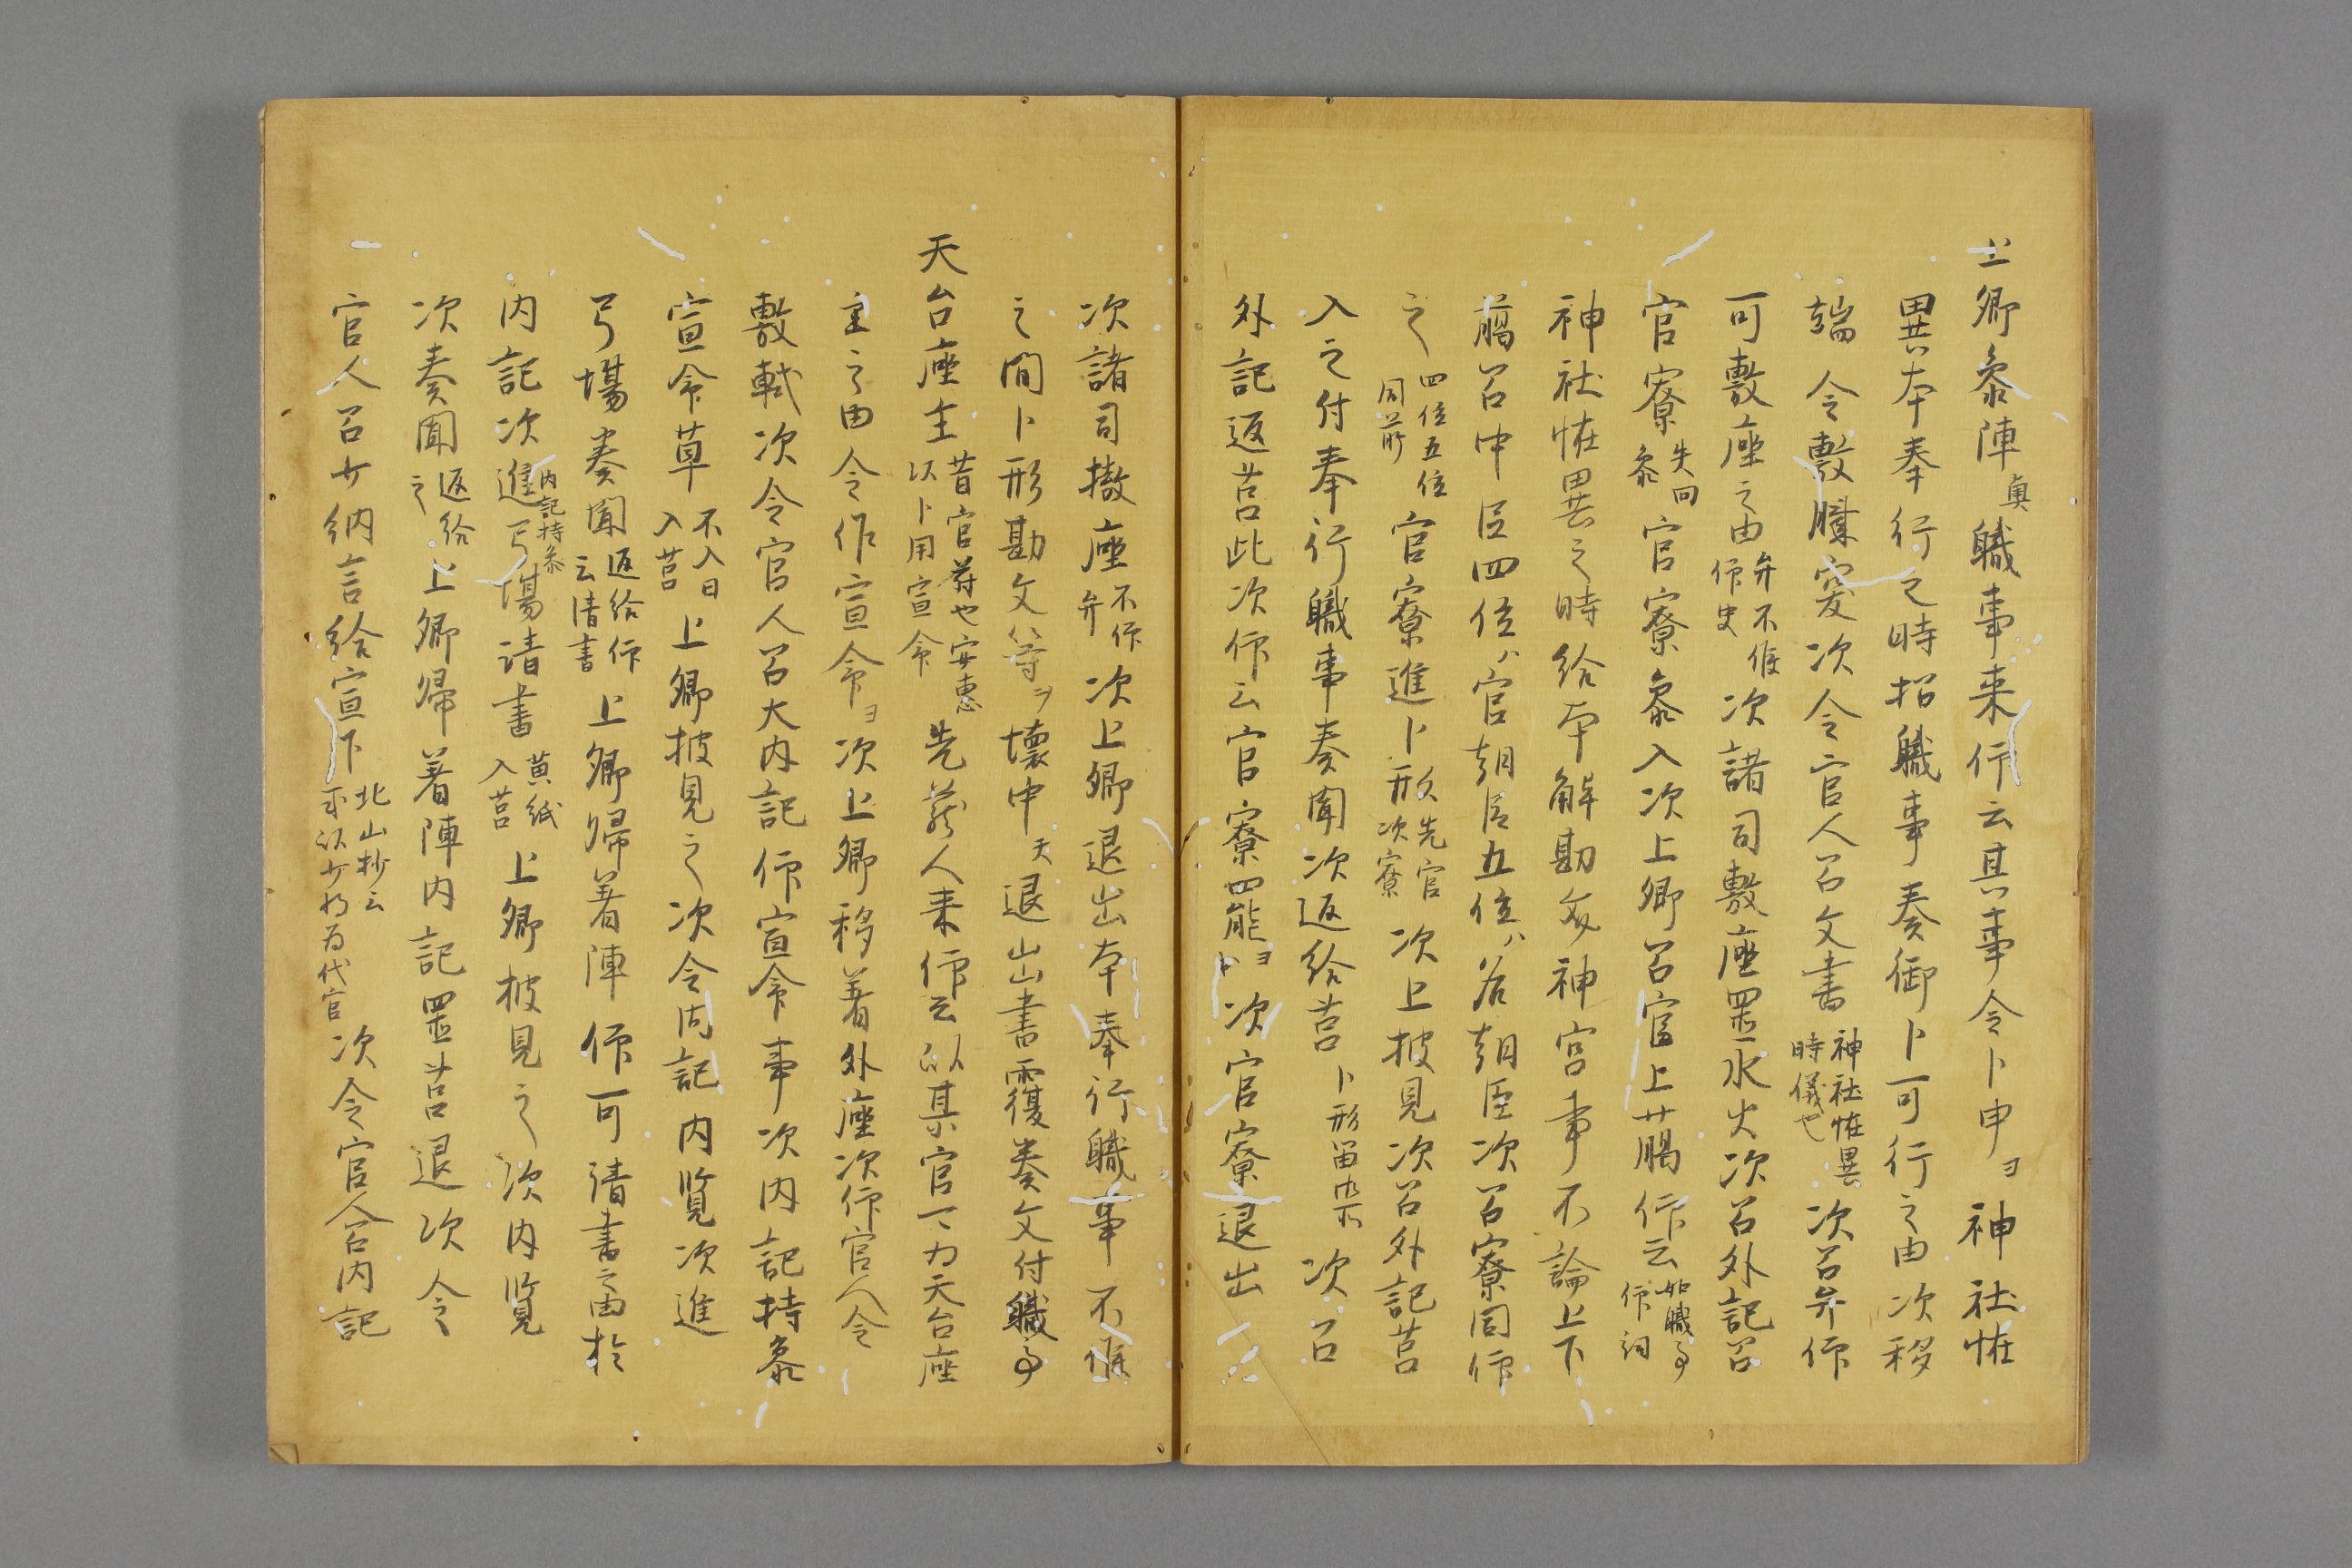 上卿参陣奥職事来仰云其事令卜申ヨ神社恠
異本奉行之時招職事奏御卜可行之由次移
端令敷膝突次令官人召文書神社恠異時儀也次召弁仰
可敷座之由弁不候仰史次諸司敷座置水火次召外記召
官寮先問参官寮参入次上卿召官上臈仰云如職事仰詞
神社恠異之時給本解勘文神宮事不論上下
臈召中臣四位ハ官朝臣五位ハ名朝臣次召寮同仰
之四位五位同前官寮進卜形先官次寮次上披見次召外記筥
入之付奉行職事奏聞次返給筥卜形留御所次召
外記返筥此次仰云官寮罷ヨ次官寮退出
次諸司撤座不仰弁次上卿退出本奉行職事不候
之間卜形勘文等ヲ懐中天退出書覆奏文付職事
天台座主昔官符也安恵以卜用宣命先蔵人来仰云以某官一力天台座
主之由令作宣命ヨ次上卿移着外座次仰官人令
敷軾次令官人召大内記仰宣命事次内記持参
宣命草不入日入筥上卿披見之次令内記内覧次進
弓場奏聞返給仰云清書上卿帰着陣仰可清書之由於
内記次進弓場内記持参清書黄紙入筥上卿披見之次内覧
次奏聞返給之上卿帰着陣内記置筥退次令
官人召少納言給宣下北山抄云或以少将為代官次令官人召内記